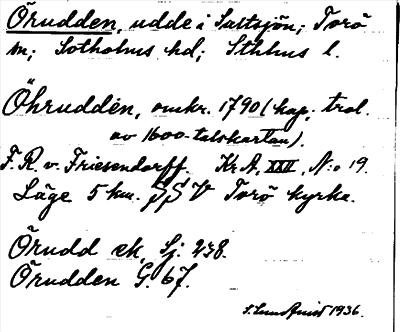 Örudden, udde i Saltsjön; Torö
sn; Sotholms hd; Sthlms l.
Öhrudden, omkr. 1790 (kop. trol.
av 1600-talskartan).
F. R. v. Friesendorff. Kr.A, XXII, N:o 19.
Läge 5 km. SSV Torö kyrka.
Örudd ek. Sj. 238.
Örudden G. 67.
S. Lundqvist 1936.